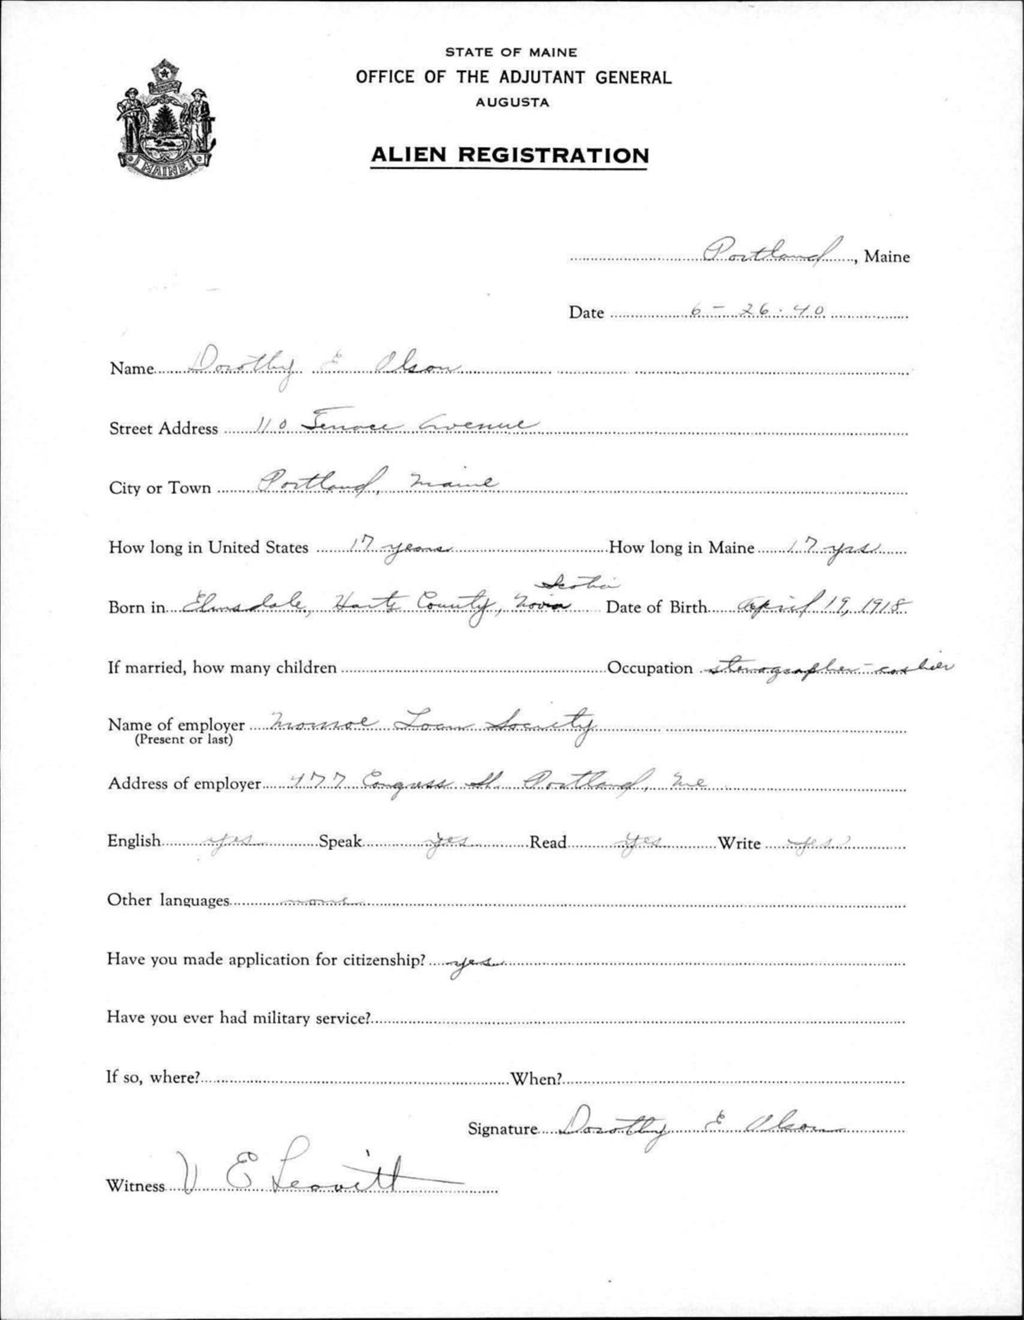 STATE OF MAINE
OFFICE OF THE ADJUTANT GENERAL
AUGUSTA
ALIEN REGISTRATION
MAINE
Portland, Maine
Date 6-26-40
Name Dorothy E Olson
Street Address 110 Terrace Avenue
City or Town Portland, Maine
How long in United States 17 years How long in Maine 17 yrs
Scotia
Born in Elmsdale, Hants County, Nova Date of Birth April 19, 1918
If married, how many children Occupation stenographer-cashier
Name of employer Monroe Loan Society
(Present or last)
Address of employer 477 Congress St. Portland, Me
English yes Speak yes Read yes Write yes
Other languages none
Have you made application for citizenship? yes
Have you ever had military service?
If so, where? When?
Signature Dorothy E Olson
Witness V E Leavitt